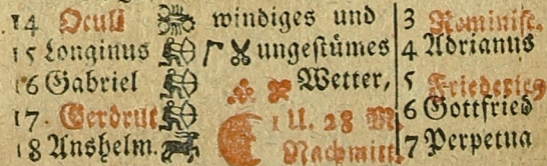 14 Oculi windiges und 3 Reminisc.
15 Longinus ungestümes 4 Adrianus
16 Gabriel Wetter, 5 Friederich
17. Gerdrut 6 Gottfried
18 Anshelm. 1 U. 28 M. 7 Perpetua
Nachmitt.